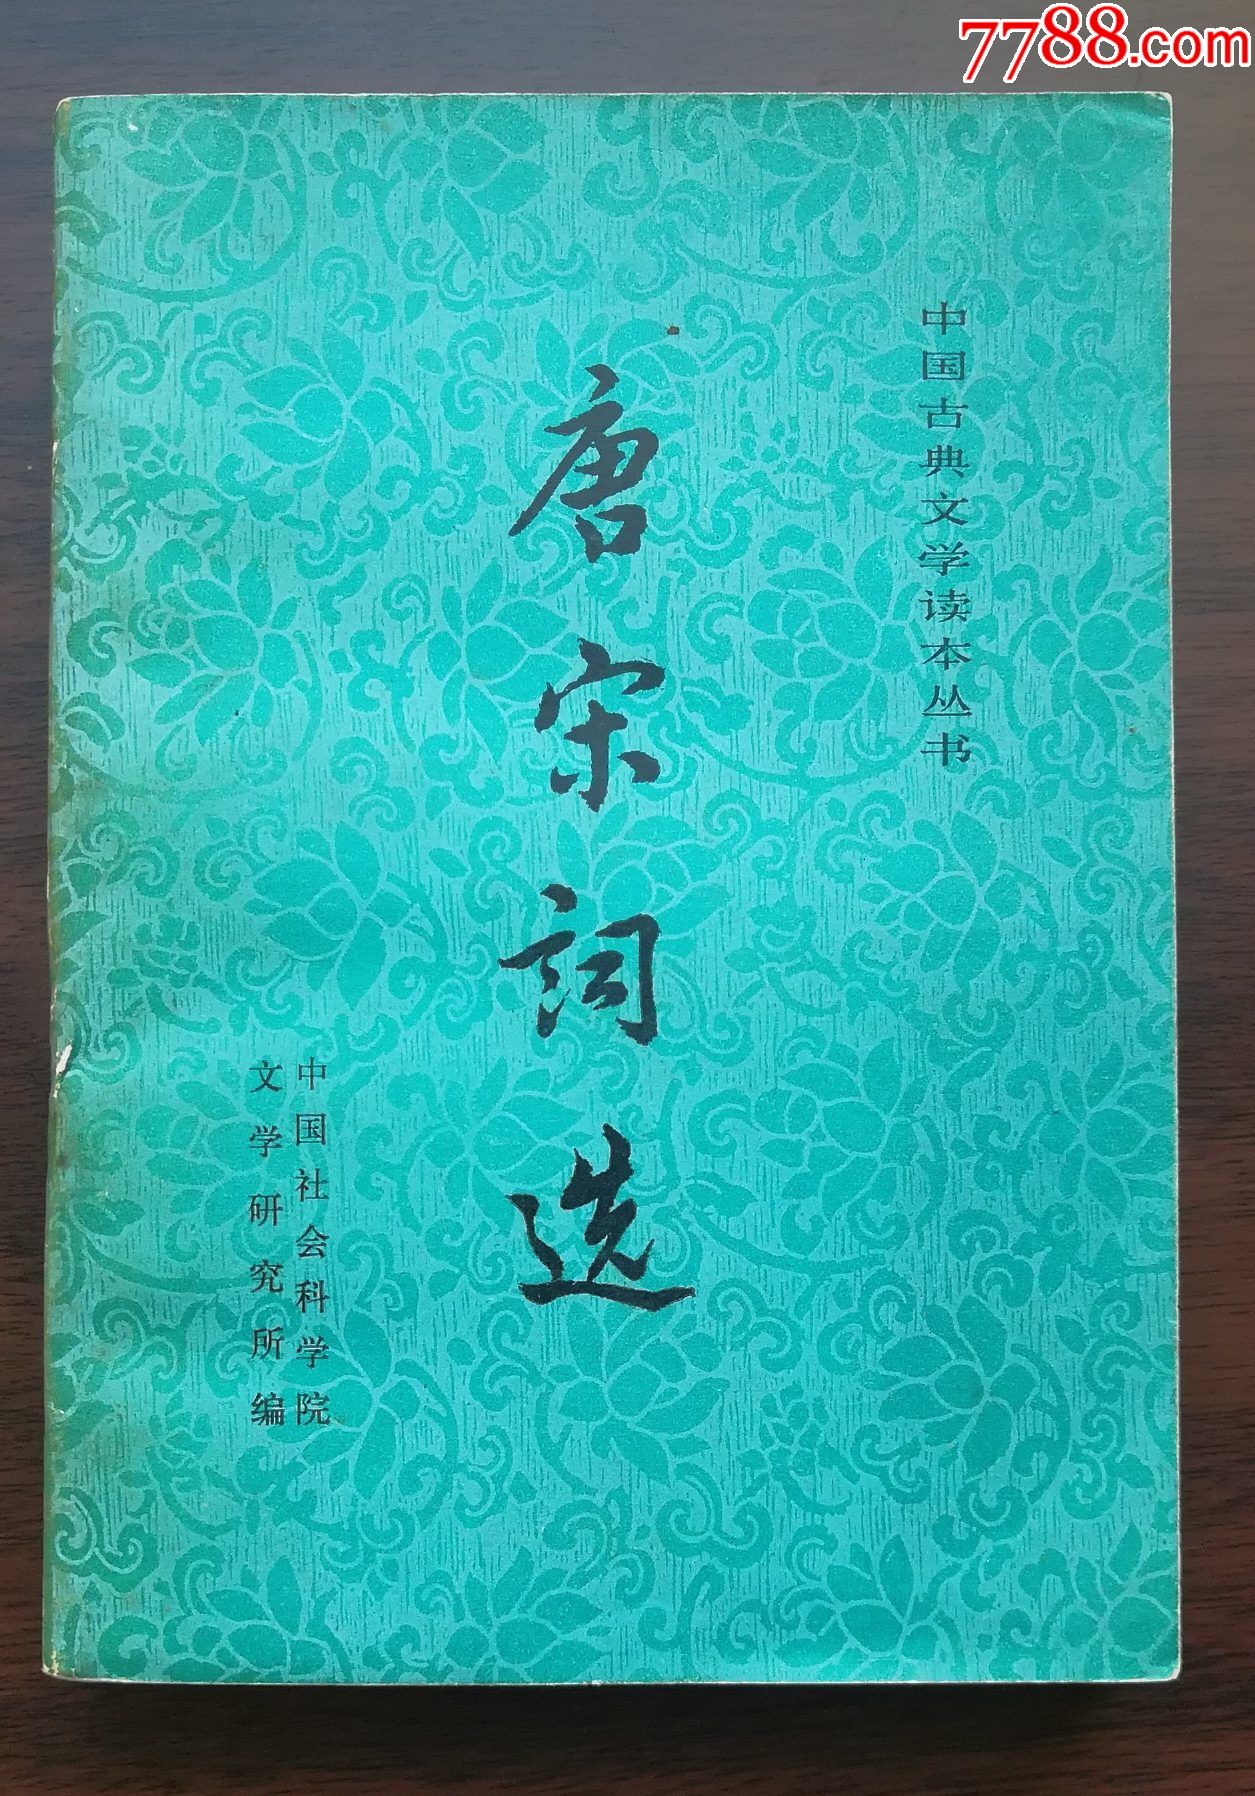 7788.com
中国古典文学读本丛书
唐宋词选
中国社会科学院
文学研究所编